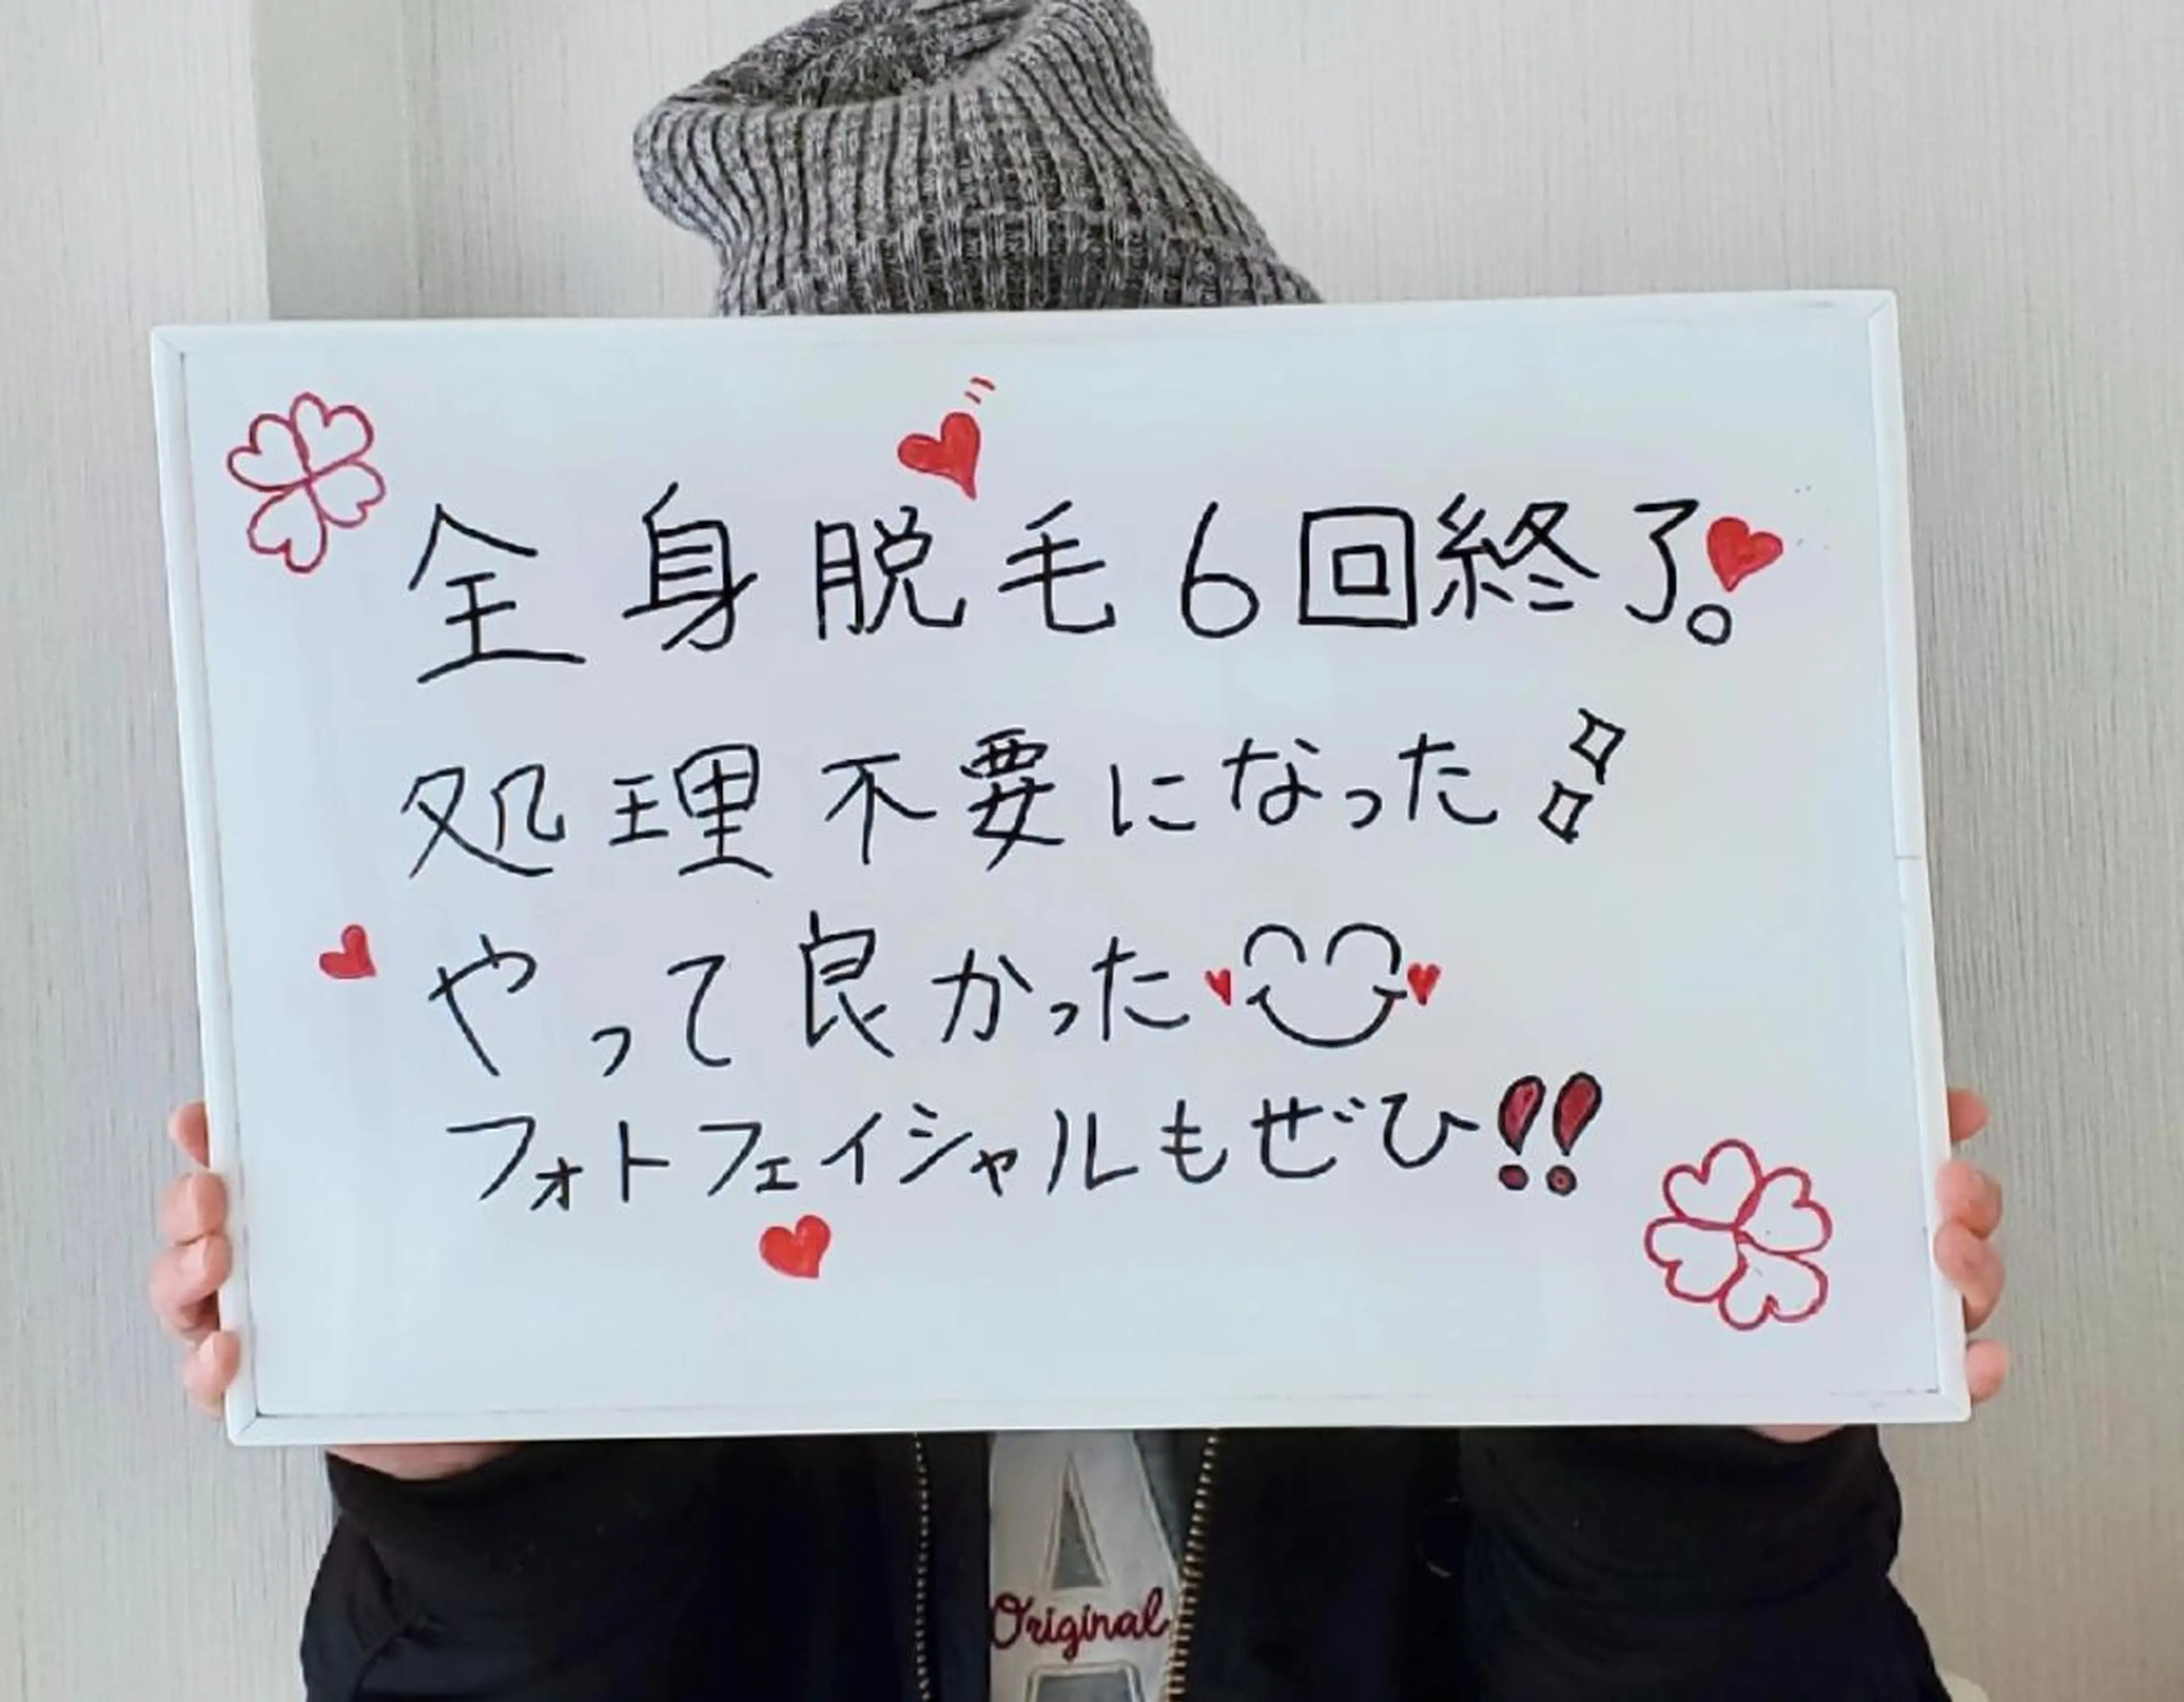 全身脱毛6回終了。
処理不要になった
やって良かった
フォトフェイシャルもぜひ!!
Original